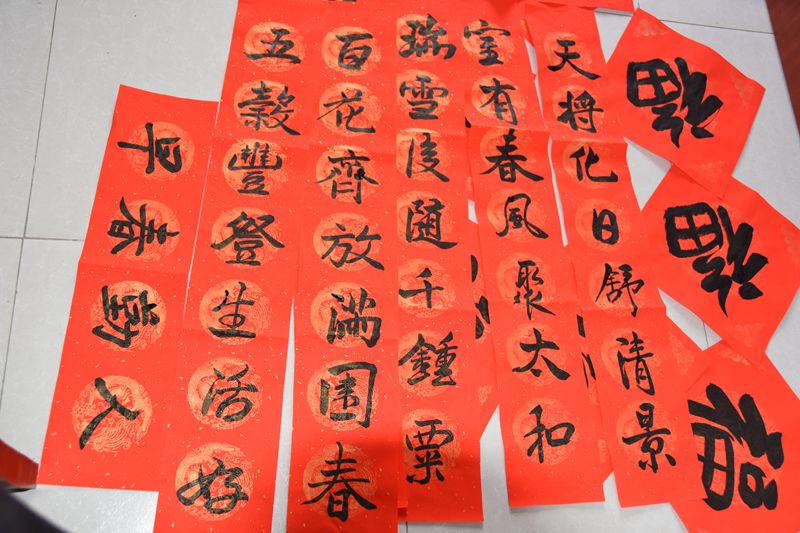 福
福
福
天将化日舒清景
室有春風聚太和
瑞雪隨千鍾粟
百花齊放満園春
五穀豐登生活好
人勤春早